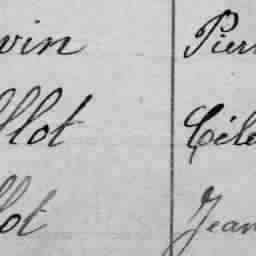 vin Pier
llot Céle
lot Jean